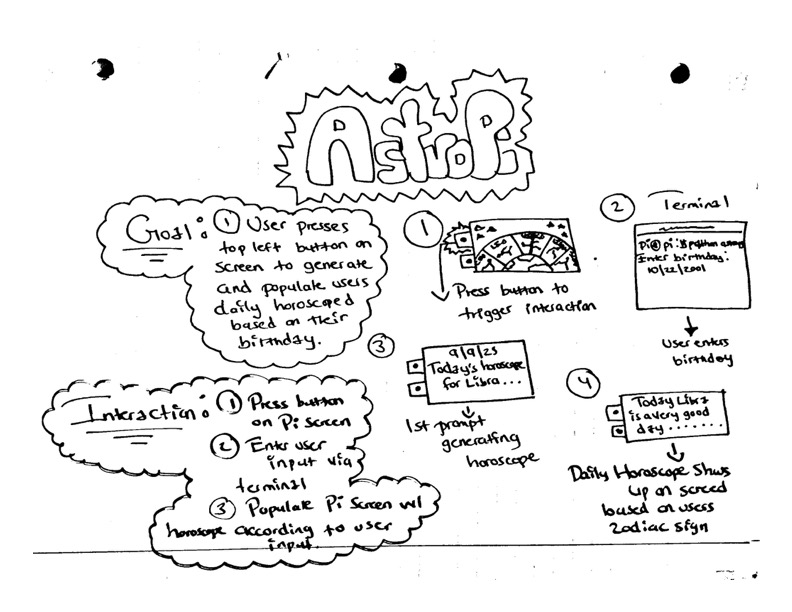 AstroPi
Goal: ① User presses
top left button on
screen to generate
and populate users
daily horoscoped
based on their
birthday.
Interaction: ① Press button
on Pi screen
② Enter user
input via
terminal
③ Populate Pi Screen w/
horoscope according to user
input.
①
Press button to
trigger interaction
② Terminal
Pi@pi:$ python
Enter birthday:
10/22/2001
User enters
birthday
③
9/9/25
Today's horoscope
for Libra...
1st prompt
generating
horoscope
④
Today Libra
is a very good
day ........
Daily Horoscope Shws
up on screed
based on users
zodiac sign